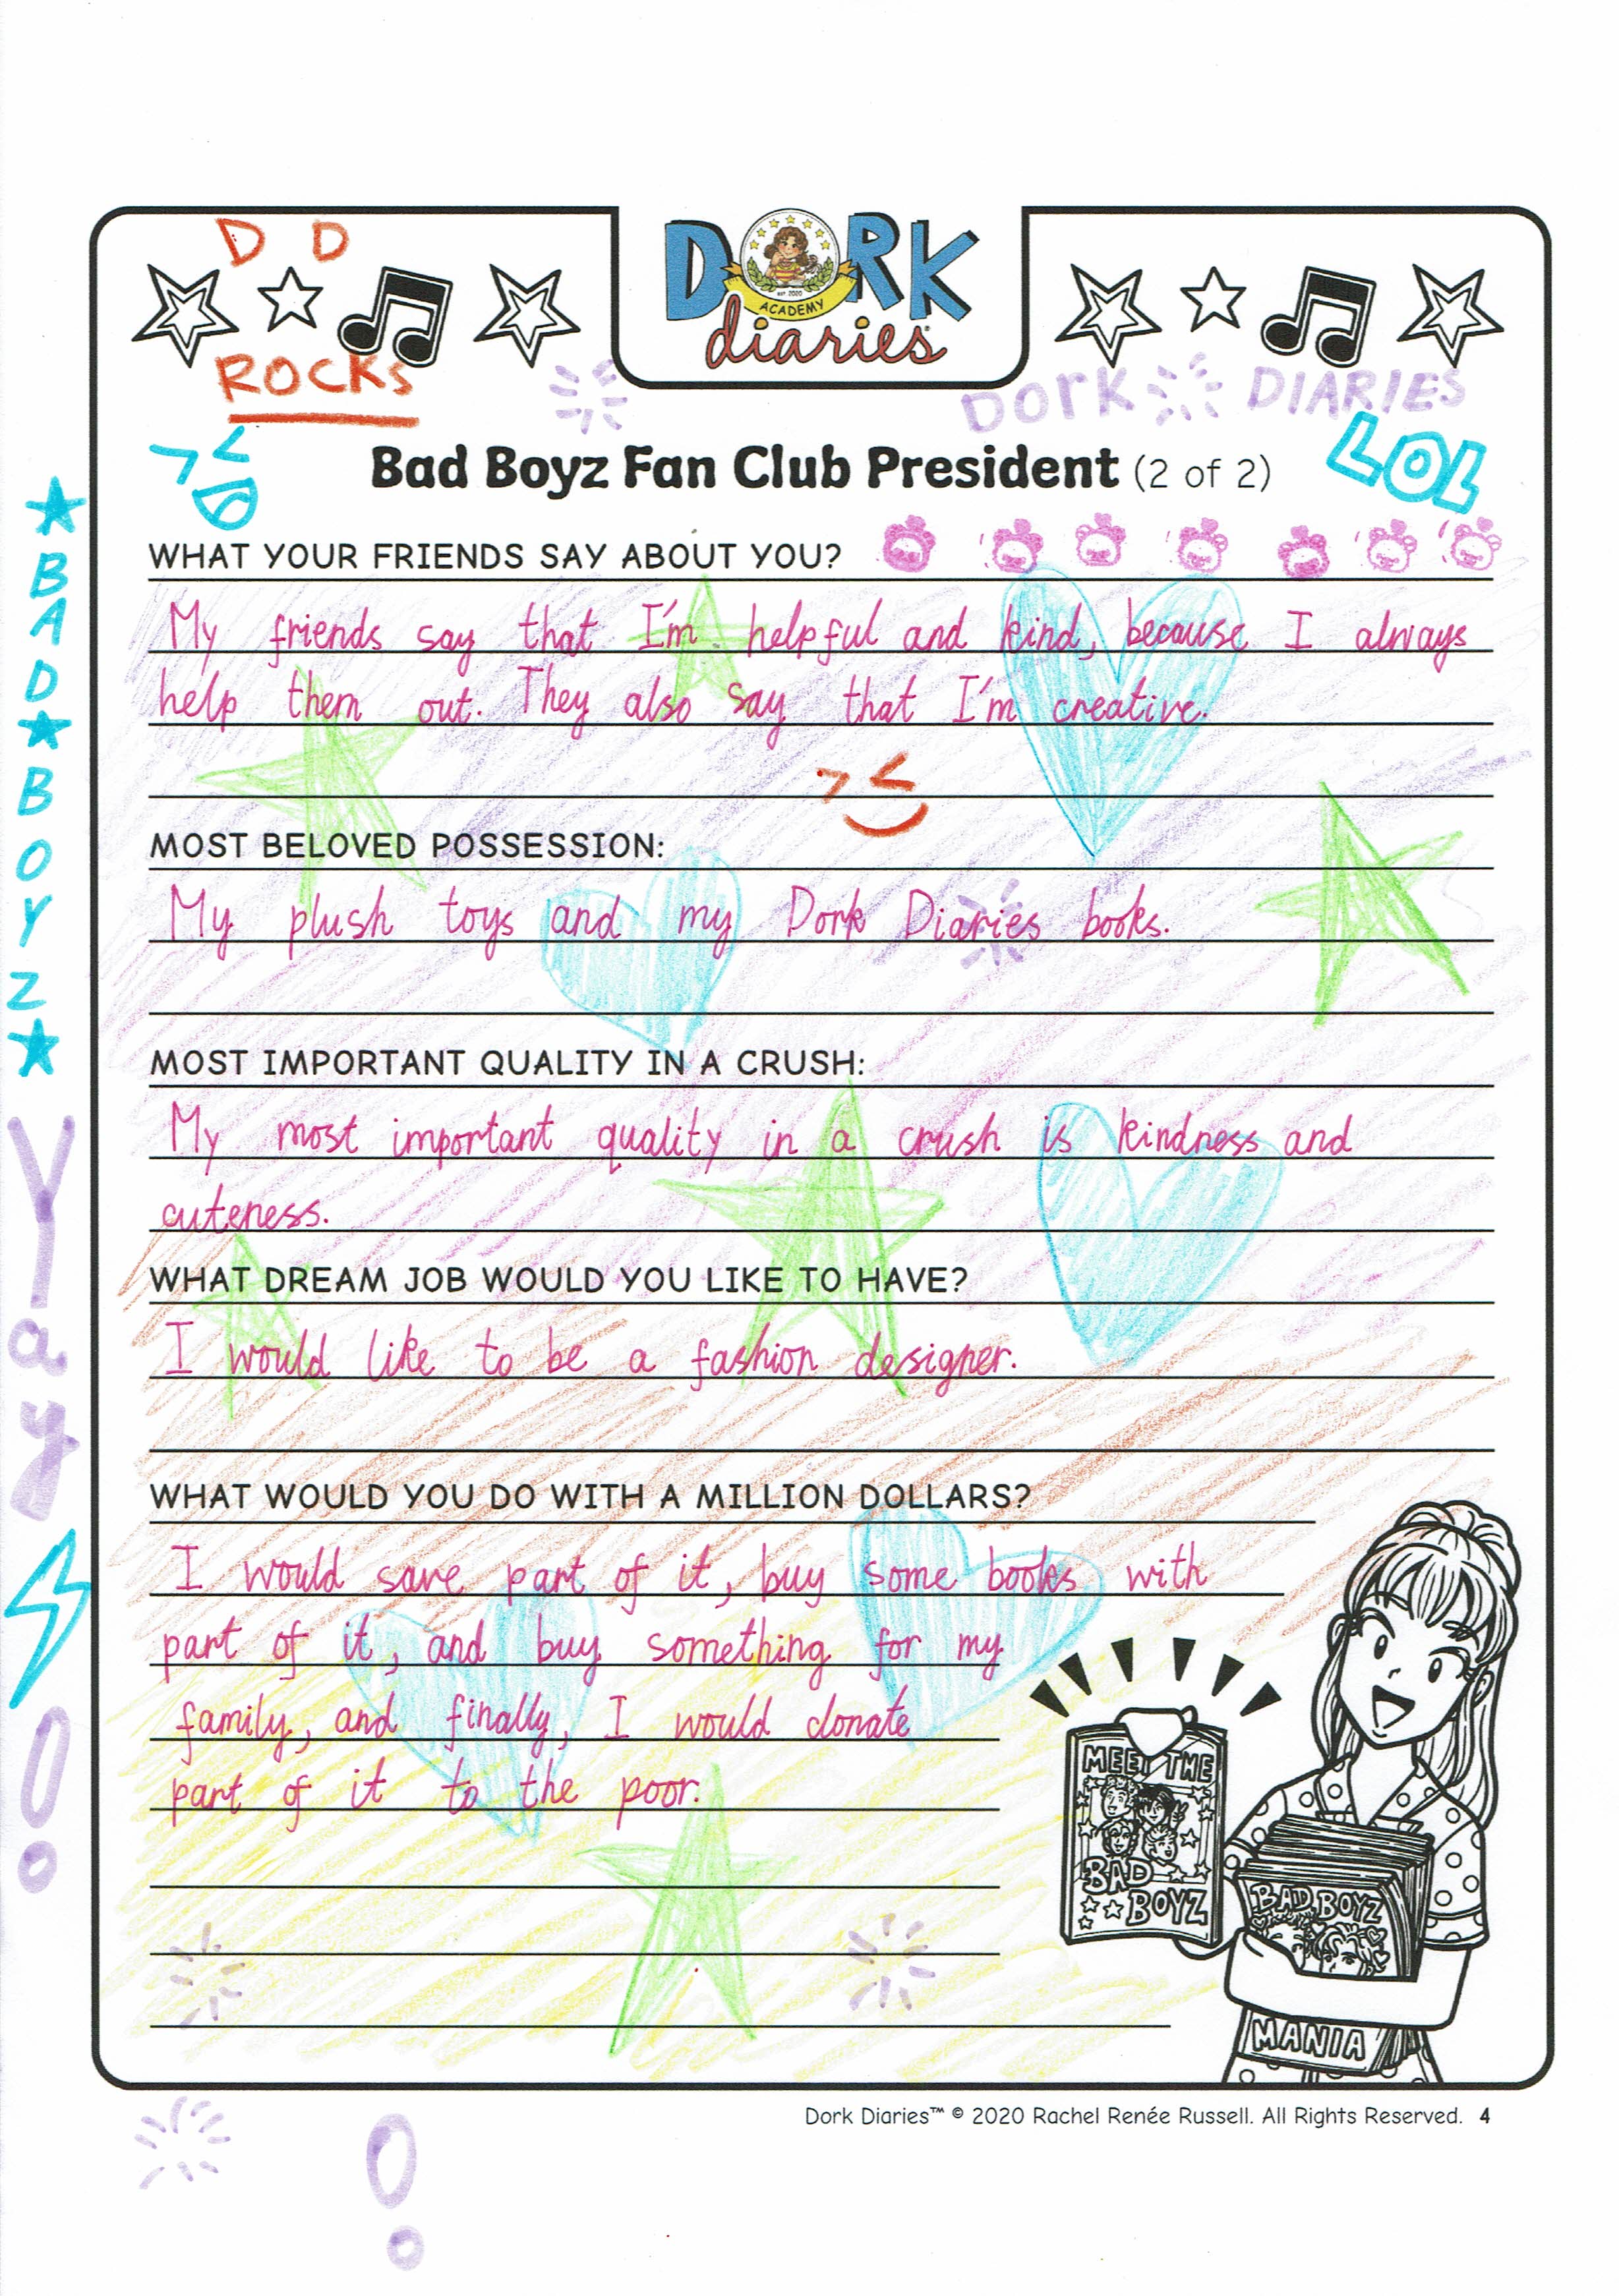 D D
DORK
EST. 2020
ACADEMY
diaries
ROCKS
Dork DIARIES
LOL
Bad Boyz Fan Club President (2 of 2)
★ BAD ★ BOYZ ★
Yay!
WHAT YOUR FRIENDS SAY ABOUT YOU?
My friends say that I'm helpful and kind, because I always
help them out. They also say that I'm creative.
MOST BELOVED POSSESSION:
My plush toys and my Dork Diaries books.
MOST IMPORTANT QUALITY IN A CRUSH:
My most important quality in a crush is kindness and
cuteness.
WHAT DREAM JOB WOULD YOU LIKE TO HAVE?
I would like to be a fashion designer.
WHAT WOULD YOU DO WITH A MILLION DOLLARS?
I would save part of it, buy some books with
part of it, and buy something for my
family, and finally, I would donate
part of it to the poor.
MEET THE
BAD
BOYZ
BAD BOYZ
MANIA
Dork Diaries™ © 2020 Rachel Renée Russell. All Rights Reserved. 4
!